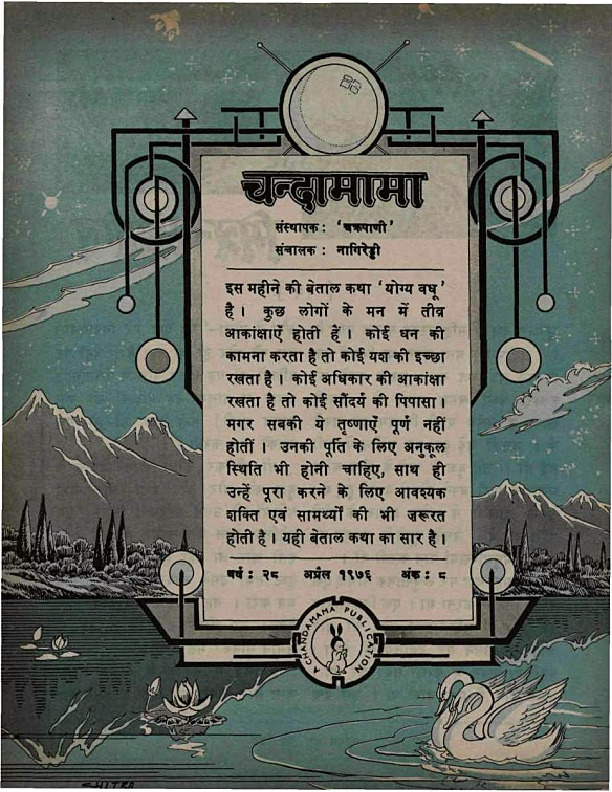 चन्दामामा
संस्थापक : 'चक्रपाणी'
संचालक : नागिरेड्डी
इस महीने की बेताल कथा 'योग्य वधू'
है । कुछ लोगों के मन में तीव्र
आकांक्षाएँ होती हैं । कोई धन की
कामना करता है तो कोई यश की इच्छा
रखता है । कोई अधिकार की आकांक्षा
रखता है तो कोई सौंदर्य की पिपासा ।
मगर सबकी ये तृष्णाएँ पूर्ण नहीं
होतीं । उनकी पूर्ति के लिए अनुकूल
स्थिति भी होनी चाहिए, साथ ही
उन्हें पूरा करने के लिए आवश्यक
शक्ति एवं सामर्थ्यों की भी जरूरत
होती है । यही बेताल कथा का सार है ।
वर्ष : २८ अप्रैल १९७६ अंक : ८
A CHANDAMAMA PUBLICATION
CHITRA